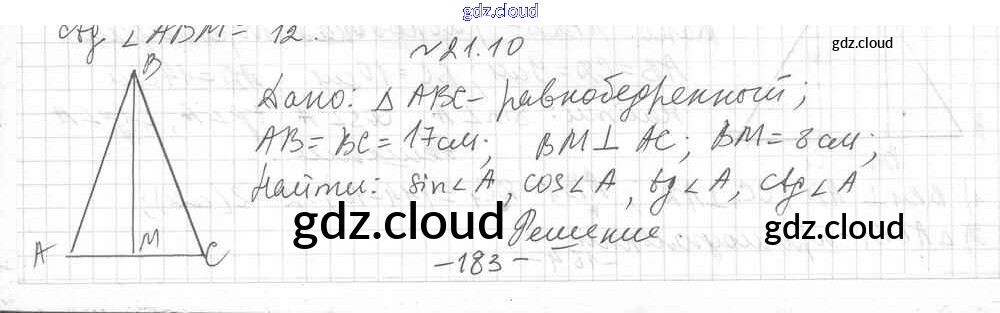 gdz.cloud
ctg ∠ABM = 12.
№21.10
gdz.cloud
B
Дано: △ABC - равнобедренный;
AB = BC = 17 см; BM ⊥ AC; BM = 8 см;
Найти: sin∠A, cos∠A, tg∠A, ctg∠A
gdz.cloud
Решение.
gdz.cloud
A M C
-183-